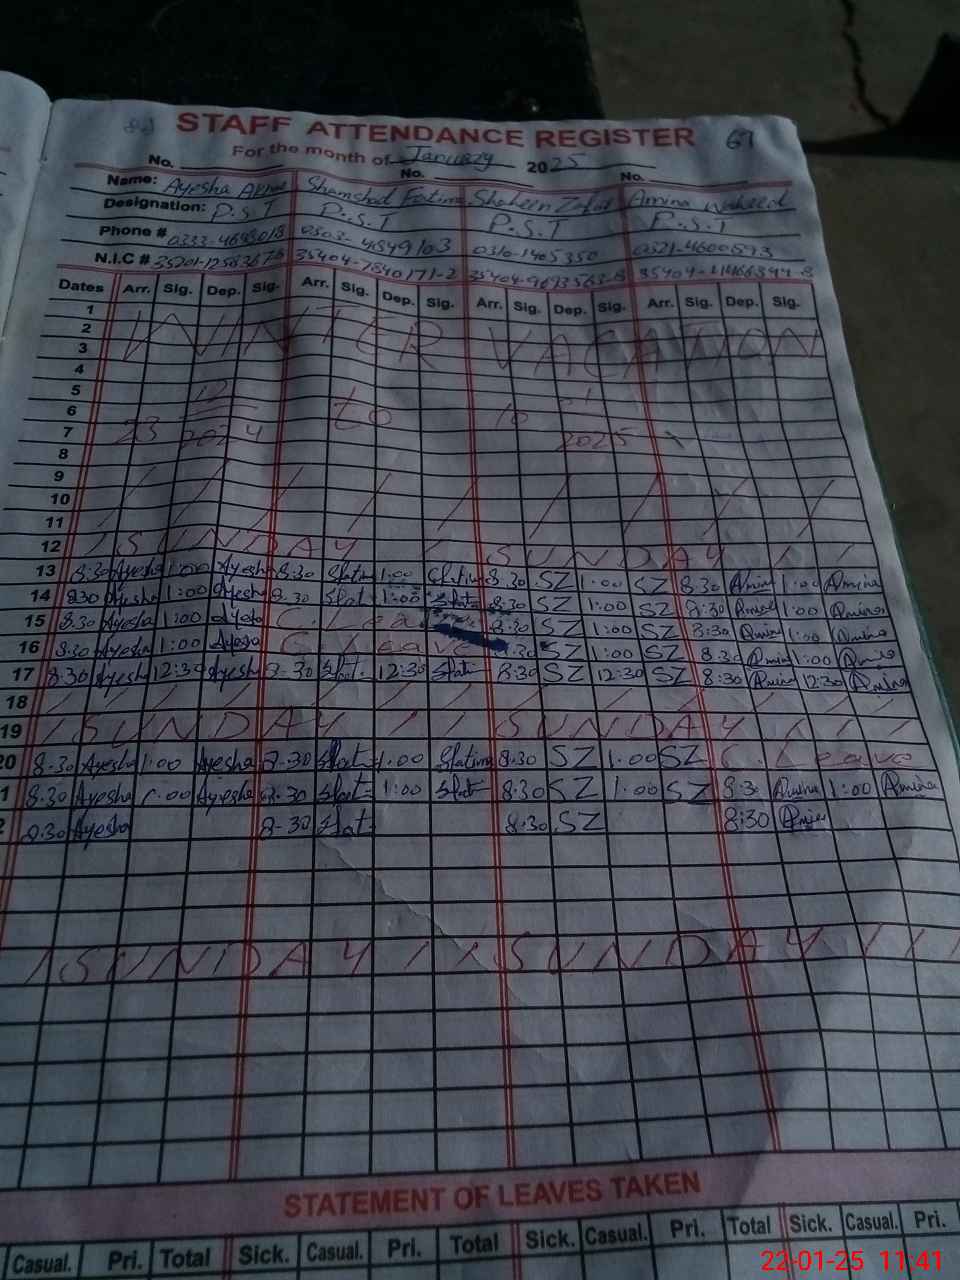 STAFF ATTENDANCE REGISTER 67
For the month of January 2025
No. No. No.
Name: Ayesha Shamshad Fatima Shaheen Zafar Amina Waheed
Designation: P.S.T P.S.T P.S.T P.S.T
Phone # 0303-4849103 0310-1405350 0321-4600593
N.I.C # 35404-7840171-2
Dates Arr. Sig. Dep. Sig. Arr. Sig. Dep. Sig. Arr. Sig. Dep. Sig. Arr. Sig. Dep. Sig.
1
2 WINTER VACATION
3
4
5 12 1
6 to 10
7 23 2024 2025
8
9
10
11
12 SUNDAY SUNDAY
13 8:30 Ayesha 1:00 Ayesha 8:30 1:00 8:30 SZ 1:00 SZ 8:30 Amina 1:00 Amina
14 8:30 Ayesha 1:00 Ayesha 8:30 1:00 8:30 SZ 1:00 SZ 8:30 Amina 1:00 Amina
15 8:30 Ayesha 1:00 Ayesha C. Lea 8:30 SZ 1:00 SZ 8:30 Amina 1:00 Amina
16 8:30 Ayesha 1:00 Ayesha C. Leave :30 SZ 1:00 SZ 8:30 Amina 1:00 Amina
17 8:30 Ayesha 12:30 Ayesha 8-30 12:30 8:30 SZ 12:30 SZ 8:30 Amina 12:30 Amina
18
19 SUNDAY SUNDAY
20 8-30 Ayesha 1:00 Ayesha 8-30 1:00 8:30 SZ 1:00 SZ C. Leave
1 8:30 Ayesha 1:00 Ayesha 8-30 1:00 8:30 SZ 1:00 SZ 8:3 Amina 1:00 Amina
2 8:30 Ayesha 8-30 8:30 SZ 8:30 Amina
SUNDAY SUNDAY
STATEMENT OF LEAVES TAKEN
Casual. Pri. Total Sick. Casual. Pri. Total Sick. Casual. Pri. Total Sick. Casual. Pri.
22-01-25 11:41